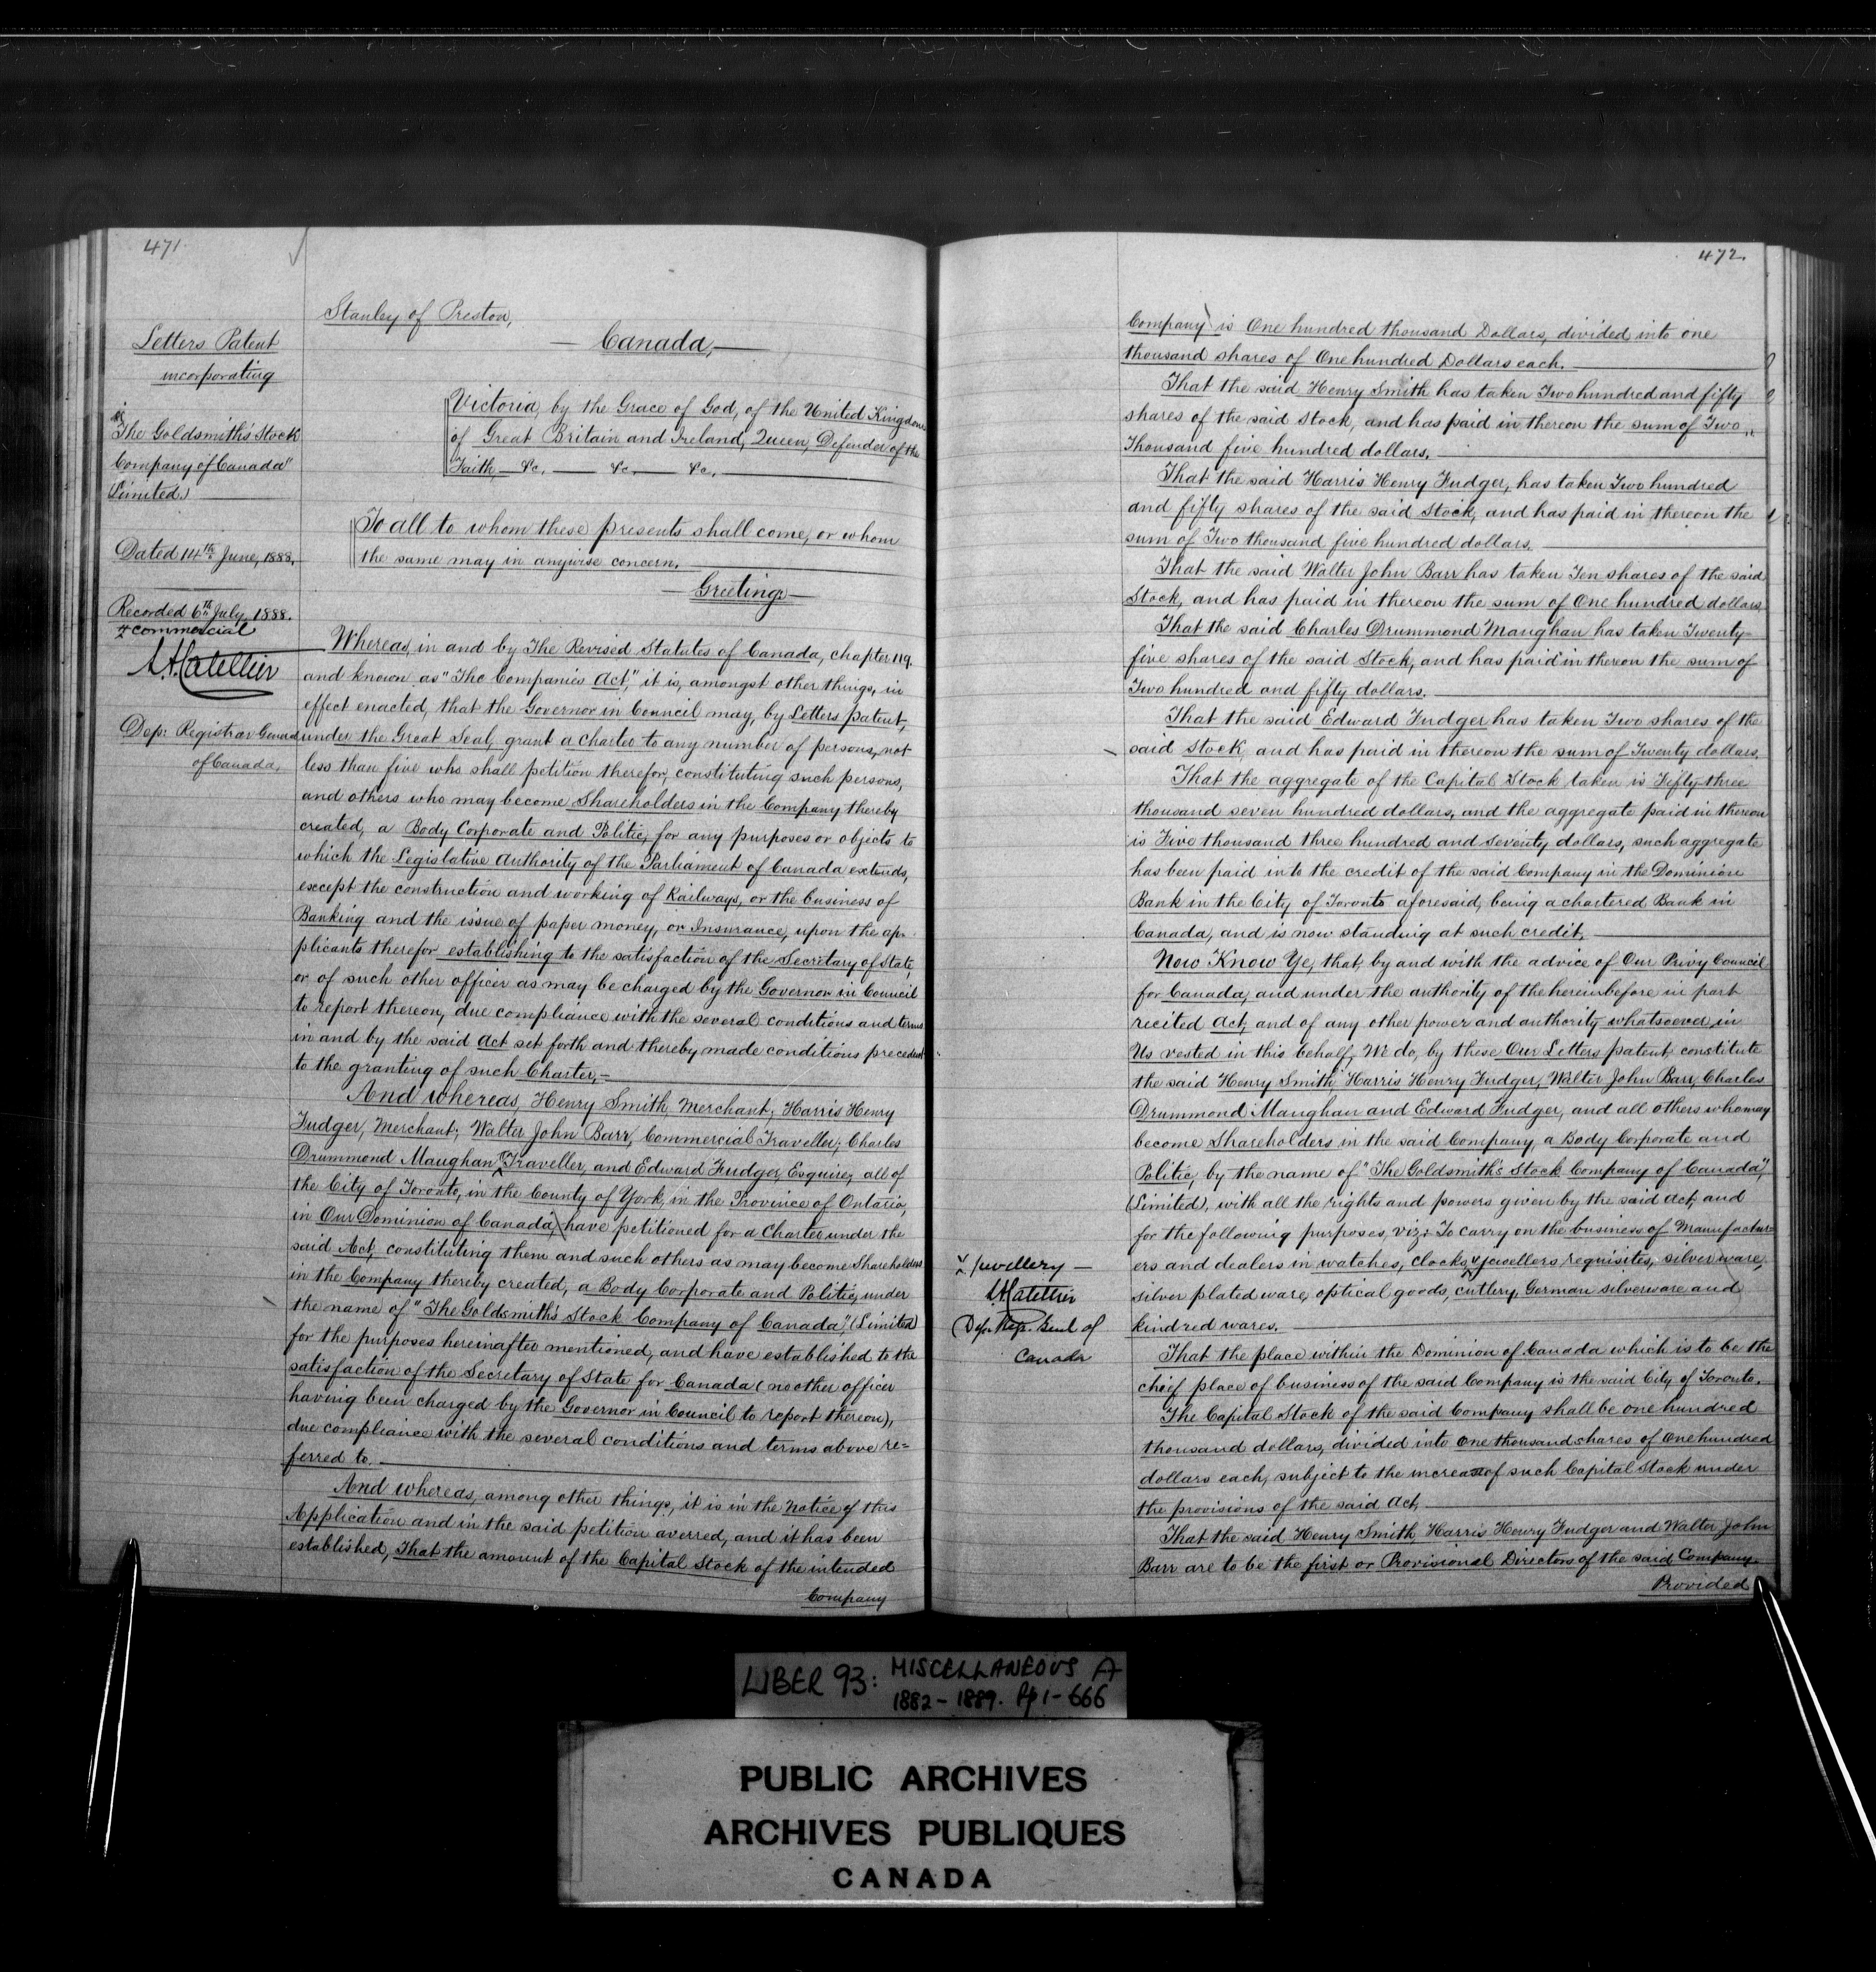 471
Stanley of Preston,
Canada,
Letters Patent
incorporating
"The Goldsmith's Stock
Company of Canada"
(Limited)
Dated 14th June, 1888.
Recorded 6th July, 1888.
+ commercial
Dep: Registrar General
of Canada,
Victoria, by the Grace of God, of the United Kingdom
of Great Britain and Ireland, Queen, Defender of the
Faith, &c. &c. &c.
To all to whom these presents shall come, or whom
the same may in anywise concern.
Greeting:
Whereas, in and by The Revised Statutes of Canada, chapter 119.
and known as "The Companies Act," it is, amongst other things, in
effect enacted, that the Governor in Council may, by Letters patent,
under the Great Seal, grant a charter to any number of persons, not
less than five who shall petition therefor, constituting such persons,
and others who may become Shareholders in the Company thereby
created, a Body Corporate and Politic, for any purposes or objects to
which the Legislative Authority of the Parliament of Canada extends,
except the construction and working of Railways, or the business of
Banking and the issue of paper money, or Insurance, upon the ap-
plicants therefor establishing to the satisfaction of the Secretary of State,
or of such other officer as may be charged by the Governor in Council
to report thereon, due compliance with the several conditions and terms
in and by the said Act set forth and thereby made conditions precedent
to the granting of such Charter,-
And whereas, Henry Smith, Merchant; Harris Henry
Fudger, Merchant; Walter John Barr, Commercial Traveller; Charles
Drummond Maughan, + Traveller, and Edward Fudger, Esquire, all of
the City of Toronto, in the County of York, in the Province of Ontario,
in Our Dominion of Canada, have petitioned for a Charter under the
said Act, constituting them and such others as may become Shareholders
in the Company thereby created, a Body Corporate and Politic, under
the name of "The Goldsmith's Stock Company of Canada", (Limited)
for the purposes hereinafter mentioned, and have established to the
satisfaction of the Secretary of State for Canada (no other officer
having been charged by the Governor in Council to report thereon),
due compliance with the several conditions and terms above re=
ferred to.
And whereas, among other things, it is in the Notice of this
Application and in the said petition averred, and it has been
established, That the amount of the Capital Stock of the intended
Company
472.
Company is One hundred thousand Dollars, divided into one
thousand shares of One hundred Dollars each.
That the said Henry Smith has taken Two hundred and fifty
shares of the said Stock, and has paid in thereon the sum of Two
Thousand five hundred dollars.
That the said Harris Henry Fudger, has taken Two hundred
and fifty shares of the said Stock, and has paid in thereon the
sum of Two thousand five hundred dollars.
That the said Walter John Barr has taken Ten shares of the said
Stock, and has paid in thereon the sum of One hundred dollars,
That the said Charles Drummond Maughan has taken Twenty=
five shares of the said Stock, and has paid in thereon the sum of
Two hundred and fifty dollars.
That the said Edward Fudger has taken Two shares of the
said Stock, and has paid in thereon the sum of Twenty dollars.
That the aggregate of the Capital Stock taken is Fifty-three
thousand seven hundred dollars, and the aggregate paid in thereon
is Five thousand three hundred and seventy dollars, such aggregate
has been paid into the credit of the said Company in the Dominion
Bank in the City of Toronto aforesaid, being a chartered Bank in
Canada, and is now standing at such credit,
Now Know Ye, that, by and with the advice of Our Privy Council
for Canada, and under the authority of the hereinbefore in part
recited Act, and of any other power and authority whatsoever in
Us vested in this behalf, We do, by these Our Letters patent constitute
the said Henry Smith Harris Henry Fudger, Walter John Barr, Charles
Drummond Maughan and Edward Fudger, and all others who may
become Shareholders in the said Company, a Body Corporate and
Politic, by the name of "The Goldsmith's Stock Company of Canada",
(Limited), with all the rights and powers given by the said Act, and
for the following purposes, viz: To carry on the business of Manufactur=
ers and dealers in watches, clocks, jewellers requisites, silver ware,
silver plated ware, optical goods, cutlery, German silverware and
kindred wares.
jewellery —
Dep. Reg. Genl of
Canada
That the place within the Dominion of Canada which is to be the
chief place of business of the said Company is the said City of Toronto.
The Capital Stock of the said Company shall be one hundred
thousand dollars, divided into one thousand shares of One hundred
dollars each, subject to the increase of such Capital Stock under
the provisions of the said Act,
That the said Henry Smith, Harris Henry Fudger and Walter John
Barr are to be the first or Provisional Directors of the said Company.
Provided
LIBER 93: MISCELLANEOUS A
1882 - 1889. Pp 1-666
PUBLIC ARCHIVES
ARCHIVES PUBLIQUES
CANADA